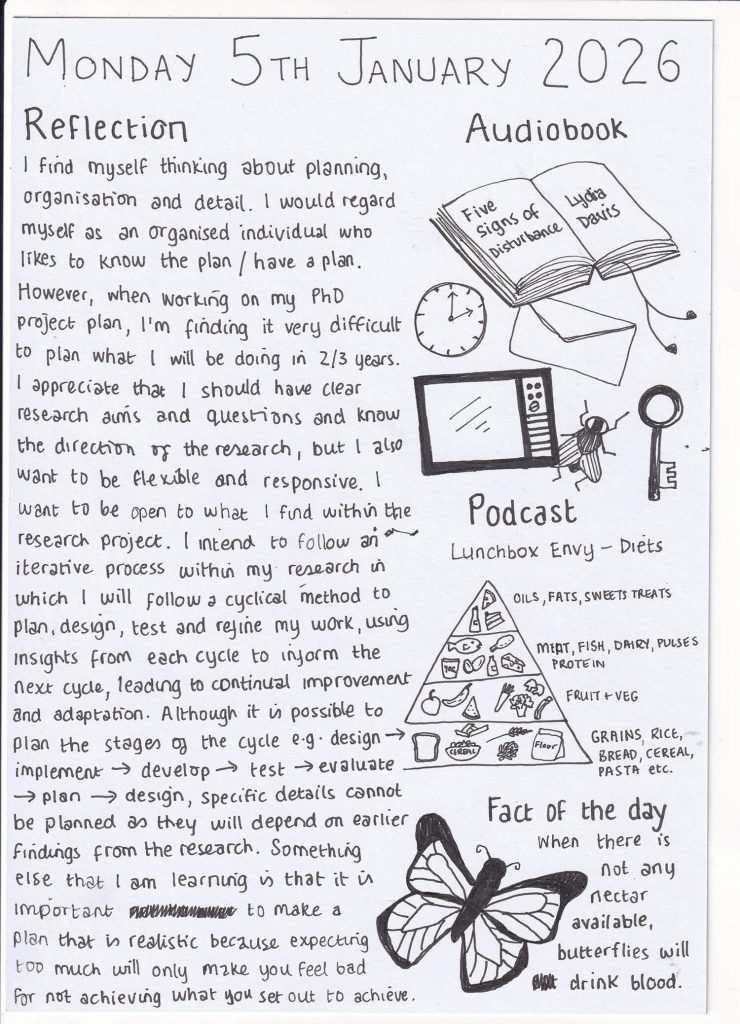 MONDAY 5TH JANUARY 2026
Reflection
I find myself thinking about planning,
organisation and detail. I would regard
myself as an organised individual who
likes to know the plan / have a plan.
However, when working on my PhD
project plan, I'm finding it very difficult
to plan what I will be doing in 2/3 years.
I appreciate that I should have clear
research aims and questions and know
the direction of the research, but I also
want to be flexible and responsive. I
want to be open to what I find within the
research project. I intend to follow an
iterative process within my research in
which I will follow a cyclical method to
plan, design, test and refine my work, using
insights from each cycle to inform the
next cycle, leading to continual improvement
and adaptation. Although it is possible to
plan the stages of the cycle e.g. design →
implement → develop → test → evaluate
→ plan → design, specific details cannot
be planned as they will depend on earlier
findings from the research. Something
else that I am learning is that it is
important to make a
plan that is realistic because expecting
too much will only make you feel bad
for not achieving what you set out to achieve.
Audiobook
Five
Signs of
Disturbance
Lydia
Davis
Podcast
Lunchbox Envy - Diets
OILS, FATS, SWEETS TREATS
MEAT, FISH, DAIRY, PULSES
PROTEIN
FRUIT + VEG
GRAINS, RICE,
BREAD, CEREAL,
PASTA etc.
CEREAL
Flour
Fact of the day
When there is
not any
nectar
available,
butterflies will
drink blood.